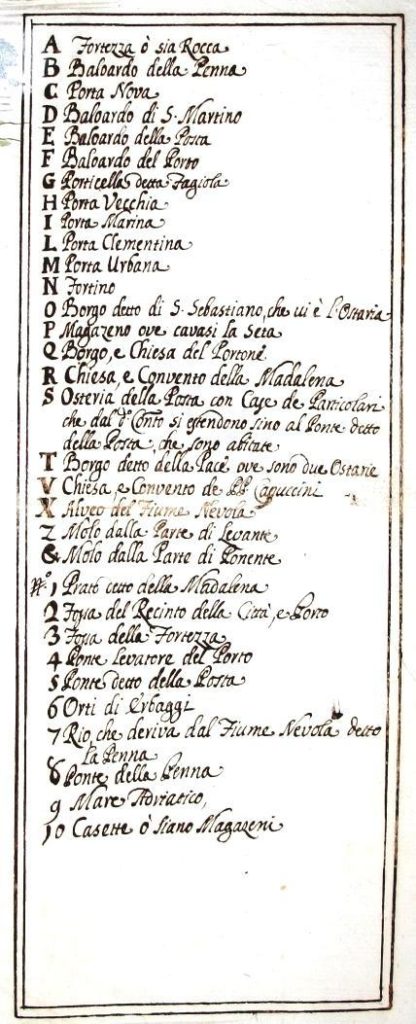 A Fortezza ò sia Rocca
B Baloardo della Penna
C Porta Nova
D Baloardo di S. Martino
E Baloardo della Posta
F Baloardo del Porto
G Porticella detta Fagiola
H Porta Vecchia
I Porta Marina
L Porta Clementina
M Porta Urbana
N Fortino
O Borgo detto di S. Sebastiano, che vi è l'Ostaria
P Magazeno ove cavasi la Seta
Q Borgo, e Chiesa del Portone
R Chiesa, e Convento della Madalena
S Osteria della Posta con Case de Particolari
che dal do. Conto si estendono sino al Ponte detto
della Posta, che sono abitate
T Borgo detto della Pace ove sono due Ostarie
V Chiesa e Convento de PP. Capuccini
X Alveo del Fiume Nevola
Z Molo dalla Parte di Levante
& Molo dalla Parte di Ponente
No. 1 Prato detto della Madalena
2 Fossa del Recinto della Città, e Porto
3 Fossa della Fortezza
4 Ponte Levatore del Porto
5 Ponte detto della Posta
6 Orti di Erbaggi
7 Rio che deriva dal Fiume Nevola detto
la Penna
8 Ponte della Penna
9 Mare Adriatico,
10 Casette ò siano Magazeni